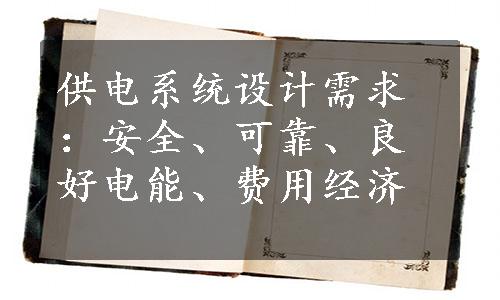 供电系统设计需求
：安全、可靠、良
好电能、费用经济